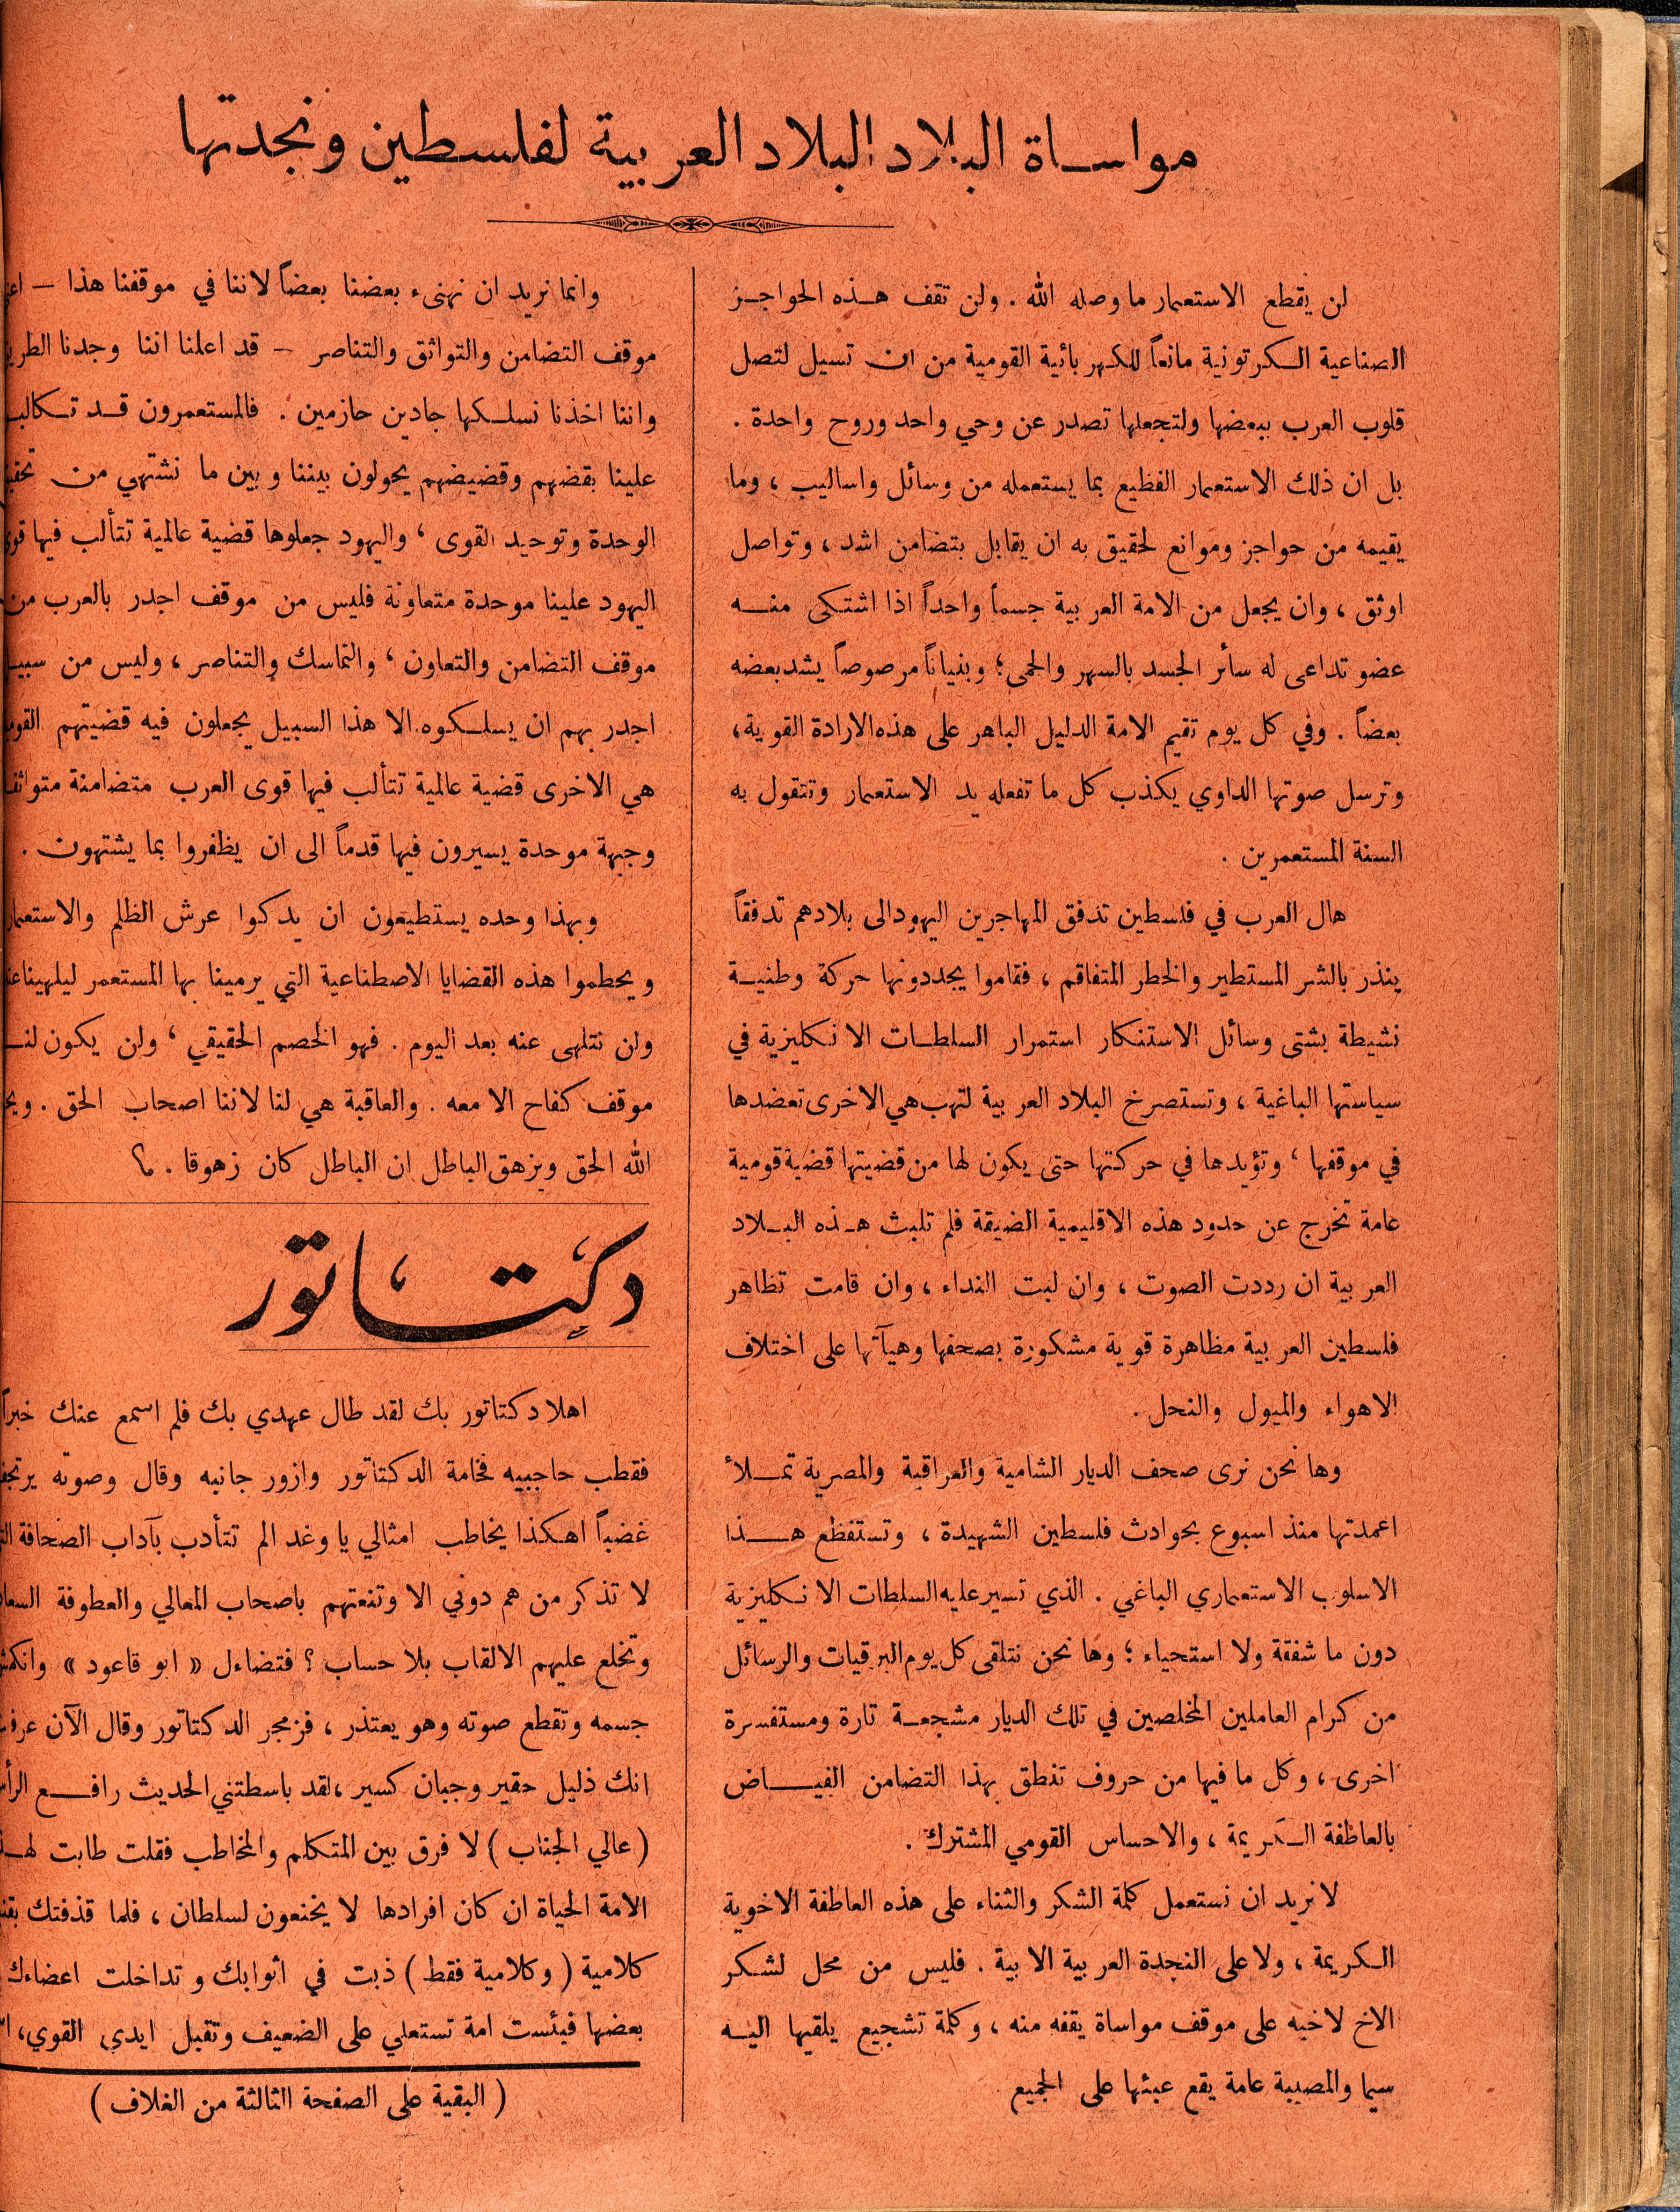 مواساة البلاد البلاد العربية لفلسطين ونجدتها
لن يقطع الاستعمار ما وصله الله . ولن تقف هذه الحواجز
الصناعية الكرتونية مانعاً للكهربائية القومية من ان تسيل لتصل
قلوب العرب ببعضها ولتجعلها تصدر عن وحي واحد وروح واحدة .
بل ان ذلك الاستعمار الفظيع بما يستعمله من وسائل واساليب ، وما
يقيمه من حواجز وموانع لحقيق به ان يقابل بتضامن اشد ، وتواصل
اوثق ، وان يجعل من الامة العربية جسماً واحداً اذا اشتكى منه
عضو تداعى له سائر الجسد بالسهر والحمى ؛ وبنياناً مرصوصاً يشد بعضه
بعضاً . وفي كل يوم تقيم الامة الدليل الباهر على هذه الارادة القوية ،
وترسل صوتها الداوي يكذب كل ما تفعله يد الاستعمار وتتقول به
السنة المستعمرين .
هال العرب في فلسطين تدفق المهاجرين اليهود الى بلادهم تدفقاً
ينذر بالشر المستطير والخطر المتفاقم ، فقاموا يجددونها حركة وطنية
نشيطة بشتى وسائل الاستنكار استمرار السلطات الانكليزية في
سياستها الباغية ، وتستصرخ البلاد العربية لتهب هي الاخرى تعضدها
في موقفها ، وتؤيدها في حركتها حتى يكون لها من قضيتها قضية قومية
عامة تخرج عن حدود هذه الاقليمية الضيقة فلم تلبث هذه البلاد
العربية ان رددت الصوت ، وان لبت النداء ، وان قامت تظاهر
فلسطين العربية مظاهرة قوية مشكورة بصحفها وهيآتها على اختلاف
الاهواء والميول والنحل .
وها نحن نرى صحف الديار الشامية والعراقية والمصرية تملأ
اعمدتها منذ اسبوع بحوادث فلسطين الشهيدة ، وتستفظع هذا
الاسلوب الاستعماري الباغي . الذي تسير عليه السلطات الانكليزية
دون ما شفقة ولا استحياء ؛ وها نحن نتلقى كل يوم البرقيات والرسائل
من كرام العاملين المخلصين في تلك الديار مشجعة تارة ومستفسرة
اخرى ، وكل ما فيها من حروف تنطق بهذا التضامن الفياض
بالعاظفة الكريمة ، والاحساس القومي المشترك .
لا نريد ان نستعمل كلمة الشكر والثناء على هذه العاطفة الاخوية
الكريمة ، ولا على النجدة العربية الابية . فليس من محل لشكر
الاخ لاخيه على موقف مواساة يقفه منه ، وكلمة تشجيع يلقيها اليه
سيما والمصيبة عامة يقع عبئها على الجميع
وانما نريد ان نهنىء بعضنا بعضاً لاننا في موقفنا هذا –
موقف التضامن والتواثق والتناصر – قد اعلنا اننا وجدنا
واننا اخذنا نسلكها جادين حازمين . فالمستعمرون قد
علينا بقضهم وقضيضهم يحولون بيننا وبين ما نشتهي من
الوحدة وتوحيد القوى ، واليهود جعلوها قضية عالمية تتألب فيها
اليهود علينا موحدة متعاونة فليس من موقف اجدر بالعرب من
موقف التضامن والتعاون ، والتماسك والتناصر ، وليس من
اجدر بهم ان يسلكوه الا هذا السبيل يجعلون فيه قضيتهم
هي الاخرى قضية عالمية تتألب فيها قوى العرب متضامنة
وجبهة موحدة يسيرون فيها قدماً الى ان يظفروا بما يشتهون .
وبهذا وحده يستطيعون ان يدكوا عرش الظلم والاستعمار
ويحطموا هذه القضايا الاصطناعية التي يرمينا بها المستعمر
وان نتلهى عنه بعد اليوم . فهو الخصم الحقيقي ، ولن يكون
موقف كفاح الا معه . والعاقبة هي لنا لاننا اصحاب الحق .
الله الحق ويزهق الباطل ان الباطل كان زهوقا . ؟
دكتاتور
اهلا دكتاتور بك لقد طال عهدي بك فلم اسمع عنك خبراً
فقطب حاجبيه فخامة الدكتاتور وازور جانبه وقال وصوته
غضباً اهكذا يخاطب امثالي يا وغد الم تتأدب بآداب الصحافة
لا تذكر من هم دوني الا وتنعتهم باصحاب المعالي والعطوفة
وتخلع عليهم الالقاب بلا حساب ؟ فتضاءل « ابو قاعود »
جسمه وتقطع صوته وهو يعتذر ، فزمجر الدكتاتور وقال الآن
انك ذليل حقير وجبان كسير ، لقد باسطتني الحديث رافع
( عالي الجناب ) لا فرق بين المتكلم والمخاطب فقلت طابت
الامة الحياة ان كان افرادها لا يخنعون لسلطان ، فلما قذفتك
كلامية ( وكلامية فقط ) ذبت في اثوابك وتداخلت اعضاءك
بعضها فبئست امة تستعلي على الضعيف وتقبل ايدي القوي ،
( البقية على الصفحة الثالثة من الغلاف )